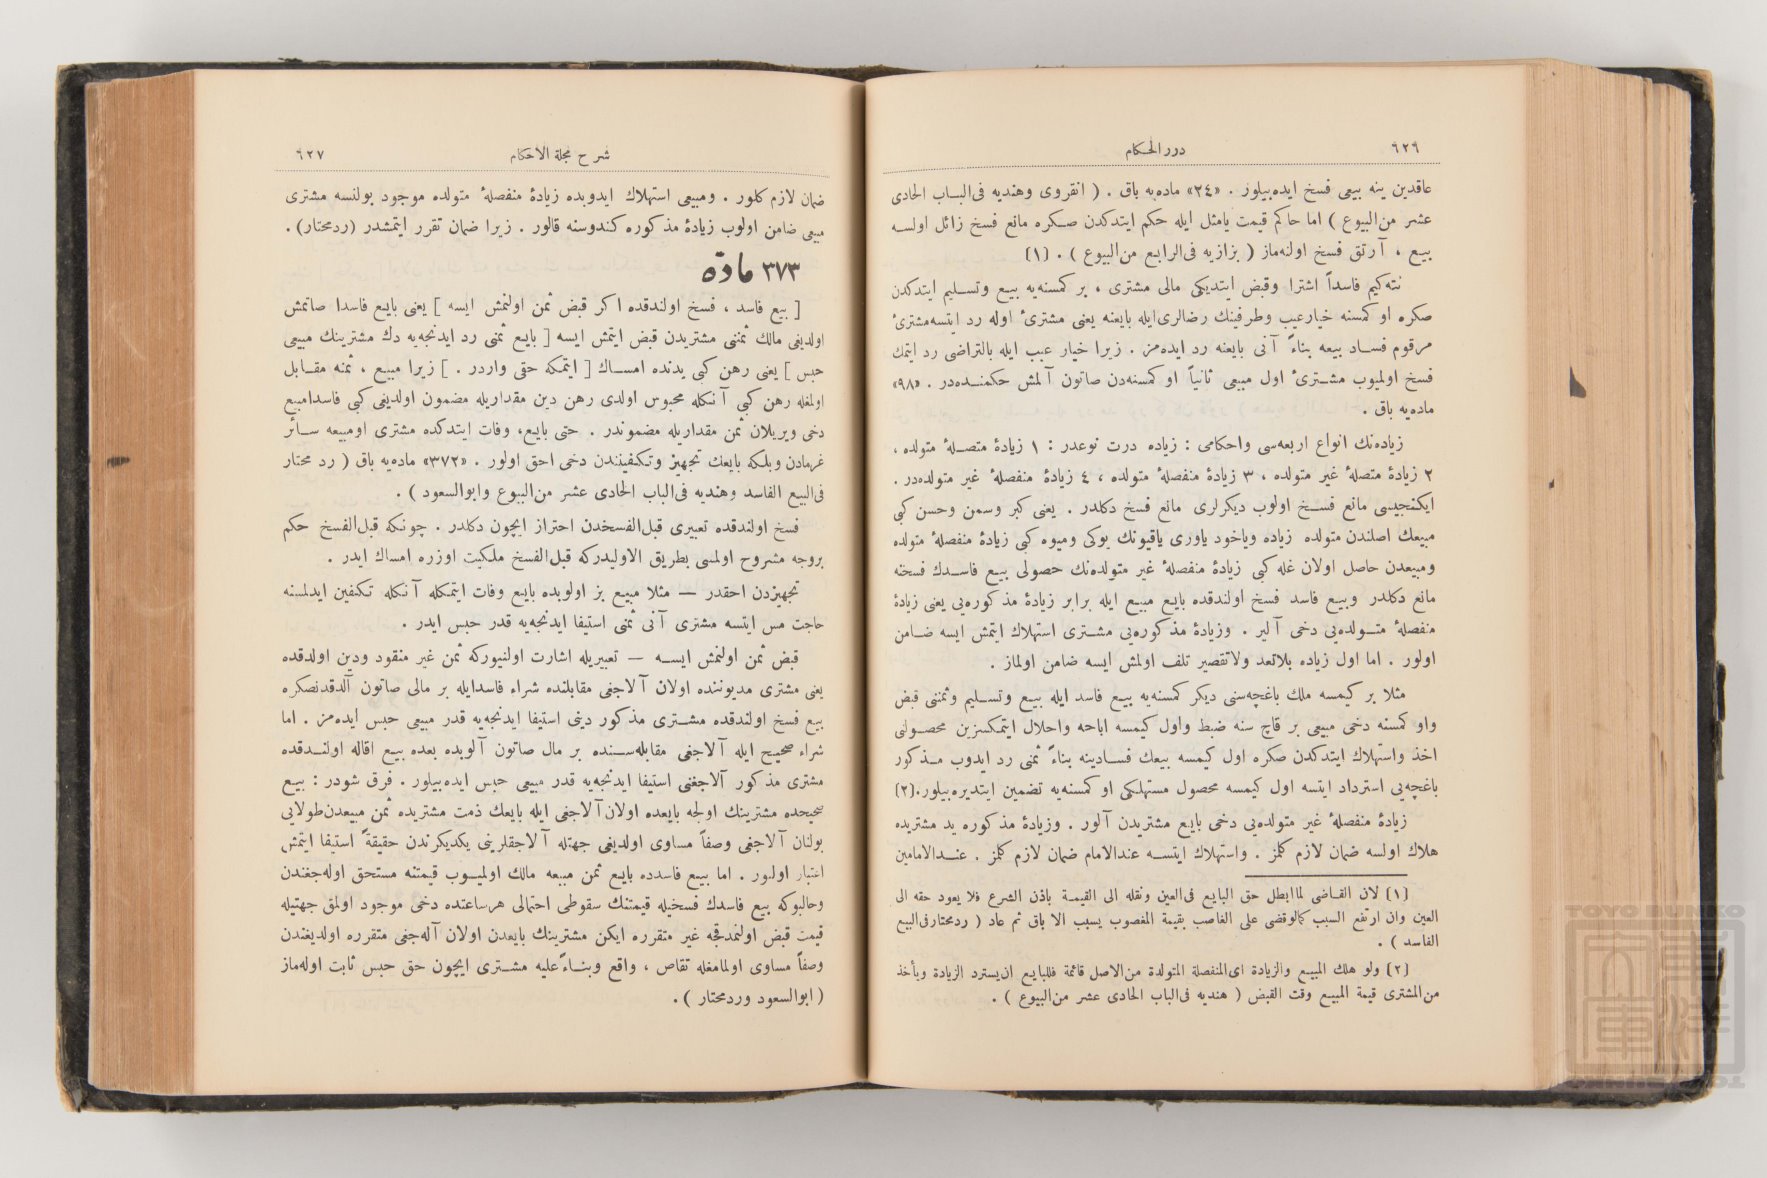 ٦٢٦
درر الحكام
عاقدین ینه بیعی فسخ ایده‌بیلور . «٢٤» ماده‌یه باق . ( انقروی وهندیه فی‌الباب الحادی
عشر من‌البیوع ) اما حاکم قیمت یامثل ایله حکم ایتدکدن صکره مانع فسخ زائل اولسه
بیع ، آرتق فسخ اولنه‌ماز ( بزازیه فی‌الرابع من‌البیوع ) . (١)
نته‌کیم فاسداً اشترا وقبض ایتدیکی مالی مشتری ، بر کمسنه‌یه بیع وتسلیم ایتدکدن
صکره او کمسنه خیارعیب وطرفینك رضالری‌ایله بایعنه یعنی مشتریٔ اوله رد ایتسه‌مشتریٔ
مرقوم فساد بیعه بناءً آنی بایعنه رد ایده‌مز . زیرا خیار عیب ایله بالتراضی رد ایتمك
فسخ اولمیوب مشتریٔ اول مبیعی ثانیاً او کمسنه‌دن صاتون آلمش حکمنده‌در . «٩٨»
ماده‌یه باق .
زیاده‌نك انواع اربعه‌سی واحکامی : زیاده درت نوعدر : ١ زیادۀ متصلۀ متولده ،
٢ زیادۀ متصلۀ غیر متولده ، ٣ زیادۀ منفصلۀ متولده ، ٤ زیادۀ منفصلۀ غیر متولده‌در .
ایکنجیسی مانع فسخ اولوب دیکرلری مانع فسخ دکلدر . یعنی کبر وسمن وحسن کبی
مبیعك اصلندن متولده زیاده ویاخود یاوری یاقیونك یوکی ومیوه کبی زیادۀ منفصلۀ متولده
ومبیعدن حاصل اولان غله کبی زیادۀ منفصلۀ غیر متولده‌نك حصولی بیع فاسدك فسخنه
مانع دکلدر وبیع فاسد فسخ اولندقده بایع مبیع ایله برابر زیادۀ مذکوره‌یی یعنی زیادۀ
منفصلۀ متولده‌یی دخی آلیر . وزیادۀ مذکوره‌یی مشتری استهلاك ایتمش ایسه ضامن
اولور . اما اول زیاده بلاتعد ولاتقصیر تلف اولمش ایسه ضامن اولماز .
مثلا بر کیمسه ملك باغچه‌سنی دیکر کمسنه‌یه بیع فاسد ایله بیع وتسلیم وثمنی قبض
واو کمسنه دخی مبیعی بر قاچ سنه ضبط واول کیمسه اباحه واحلال ایتمکسزین محصولنی
اخذ واستهلاك ایتدکدن صکره اول کیمسه بیعك فسادینه بناءً ثمنی رد ایدوب مذکور
باغچه‌یی استرداد ایتسه اول کیمسه محصول مستهلکی او کمسنه‌یه تضمین ایتدیره‌بیلور.(٢)
زیادۀ منفصلۀ غیر متولده‌یی دخی بایع مشتریدن آلور . وزیادۀ مذکوره ید مشتریده
هلاك اولسه ضمان لازم کلمز . واستهلاك ایتسه عندالامام ضمان لازم کلمز . عندالامامین
(١) لان القاضی لماابطل حق البایع فی‌العین ونقله الی القیمة باذن الشرع فلا یعود حقه الی
العین وان ارتفع السبب کمالوقضی علی الغاصب بقیمة المغصوب بسبب الا باق ثم عاد ( ردمحتارفی‌البیع
الفاسد ) .
(٢) ولو هلك المبیع والزیادة ای‌المنفصلة المتولدة من‌الاصل قائمة فللبایع ان‌یسترد الزیادة ویأخذ
من‌المشتری قیمة المبیع وقت القبض ( هندیه فی‌الباب الحادی عشر من‌البیوع ) .
شرح مجلة الاحکام
٦٢٧
ضمان لازم کلور . ومبیعی استهلاك ایدوبده زیادۀ منفصلۀ متولده موجود بولنسه مشتری
مبیعی ضامن اولوب زیادۀ مذکوره کندوسنه قالور . زیرا ضمان تقرر ایتمشدر (ردمحتار).
٣٧٣ مادّه
[ بیع فاسد ، فسخ اولندقده اکر قبض ثمن اولنمش ایسه ] یعنی بایع فاسدا صاتمش
اولدیغی مالك ثمننی مشتریدن قبض ایتمش ایسه [ بایع ثمنی رد ایدنجه‌یه دك مشترینك مبیعی
حبس ] یعنی رهن کبی یدنده امساك [ ایتمکه حقی واردر . ] زیرا مبیع ، ثمنه مقابل
اولمغله رهن کبی آنکله محبوس اولدی رهن دین مقداریله مضمون اولدیغی کبی فاسدامبیع
دخی ویریلان ثمن مقداریله مضموندر . حتی بایع، وفات ایتدکده مشتری اومبیعه سائر
غرمادن وبلکه بایعك تجهیز وتکفیندن دخی احق اولور . «٣٧٢» ماده‌یه باق ( رد محتار
فی‌البیع الفاسد وهندیه فی‌الباب الحادی عشر من‌البیوع وابوالسعود ) .
فسخ اولندقده تعبیری قبل‌الفسخدن احتراز ایچون دکلدر . چونکه قبل‌الفسخ حکم
بروجه مشروح اولمسی بطریق الاولیدرکه قبل‌الفسخ ملکیت اوزره امساك ایدر .
تجهیزدن احقدر — مثلا مبیع بز اولوبده بایع وفات ایتمکله آنکله تکفین ایدلمسنه
حاجت مس ایتسه مشتری آنی ثمنی استیفا ایدنجه‌یه قدر حبس ایدر .
قبض ثمن اولنمش ایسه — تعبیریله اشارت اولنیورکه ثمن غیر منقود ودین اولدقده
یعنی مشتری مدیوننده اولان آلاجغی مقابلنده شراء فاسدایله بر مالی صاتون آلدقدنصکره
بیع فسخ اولندقده مشتری مذکور دینی استیفا ایدنجه‌یه قدر مبیعی حبس ایده‌مز . اما
شراء صحیح ایله آلاجغی مقابله‌سنده بر مال صاتون آلوبده بعده بیع اقاله اولندقده
مشتری مذکور آلاجغنی استیفا ایدنجه‌یه قدر مبیعی حبس ایده‌بیلور . فرق شودر : بیع
صحیحده مشترینك اولجه بایعده اولان‌آلاجغی ایله بایعك ذمت مشتریده ثمن مبیعدن‌طولایی
بولنان آلاجغی وصفاً مساوی اولدیغی جهتله آلاجقلرینی یکدیکرندن حقیقةً استیفا ایتمش
اعتبار اولنور . اما بیع فاسدده بایع ثمن مبیعه مالك اولمیوب قیمتنه مستحق اوله‌جغندن
وحالبوکه بیع فاسدك فسخیله قیمتنك سقوطی احتمالی هرساعتده دخی موجود اولمق جهتیله
قیمت قبض اولنمدقجه غیر متقرره ایکن مشترینك بایعدن اولان آله‌جغی متقرره اولدیغندن
وصفاً مساوی اولمامغله تقاص ، واقع وبناءً علیه مشتری ایچون حق حبس ثابت اوله‌ماز
( ابوالسعود وردمحتار ) .
TOYO BUNKO